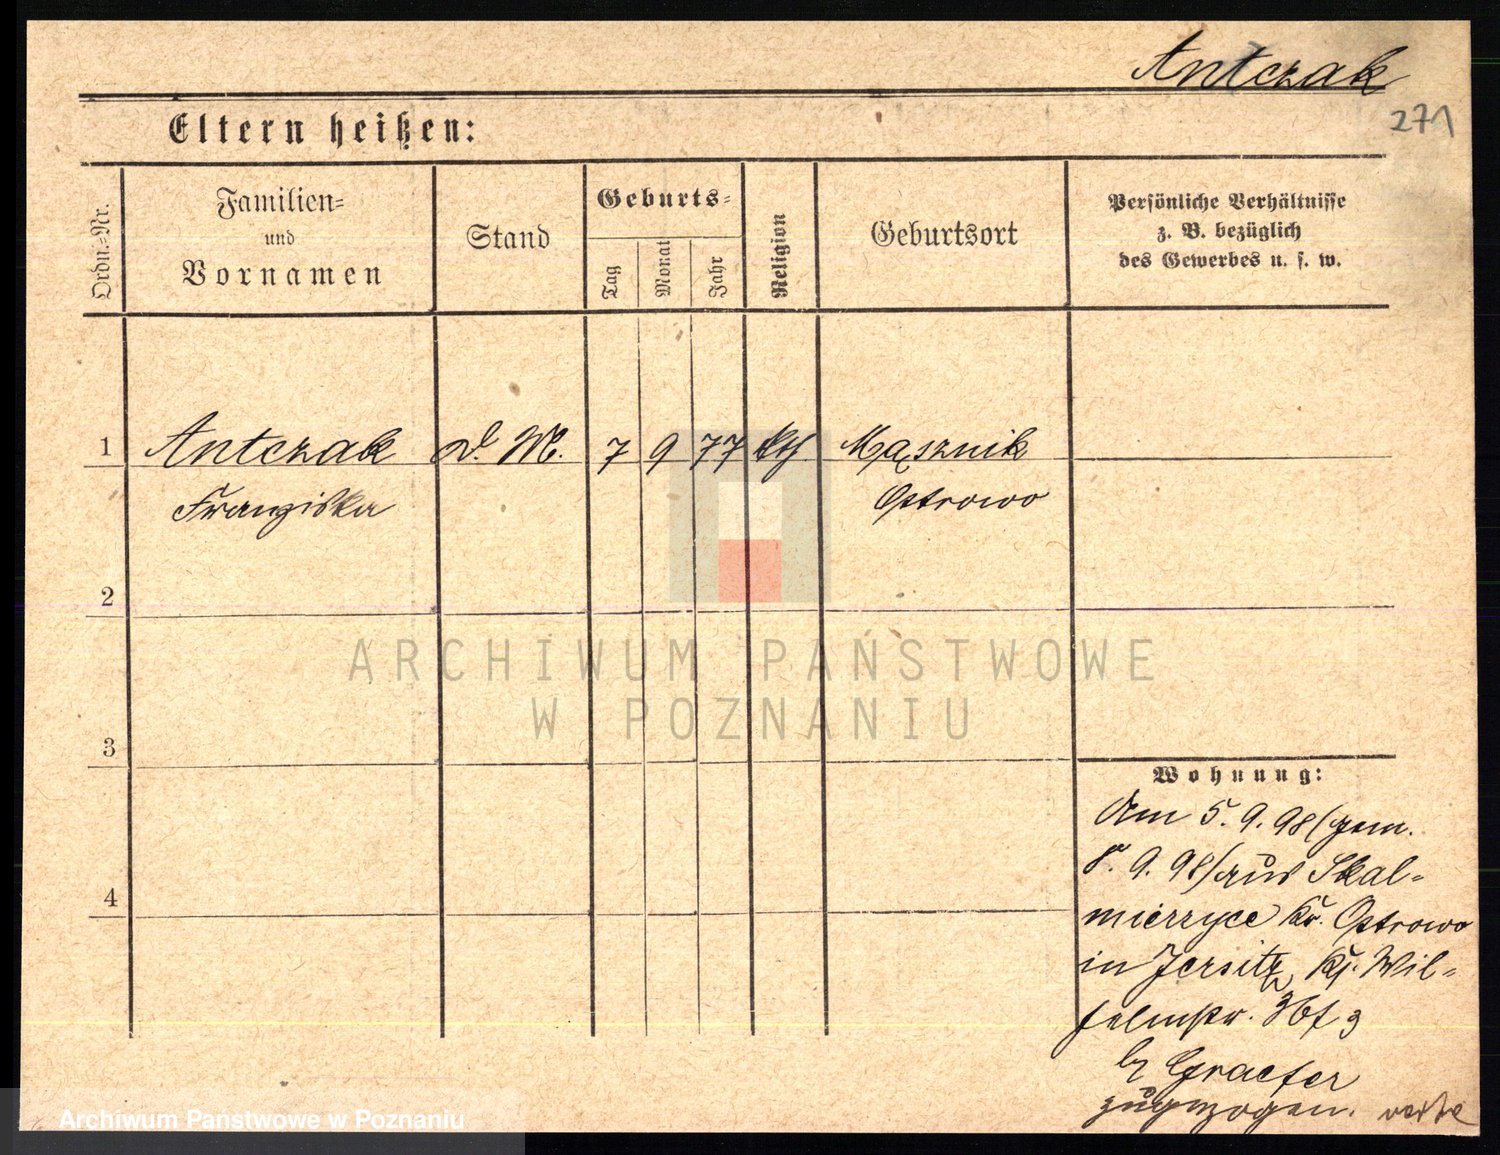 Antczak
271
Eltern heißen:
Ordn.-Nr.
Familien-
und
Vornamen
Stand
Geburts-
Tag
Monat
Jahr
Religion
Geburtsort
Persönliche Verhältnisse
z. B. bezüglich
des Gewerbes u. s. w.
1 Antczak D. M. 7 9 77 kth Mąsznik
Franziska Ostrowo
2
3
4
ARCHIWUM PAŃSTWOWE
W POZNANIU
Wohnung:
Am 5. 9. 98 (gem.
8. 9. 98) aus Skal-
mierzyce Kr. Ostrowo
in Jersitz, Ks. Wil-
helmstr.
b/ Graefer
zugezogen. verte
Archiwum Państwowe w Poznaniu